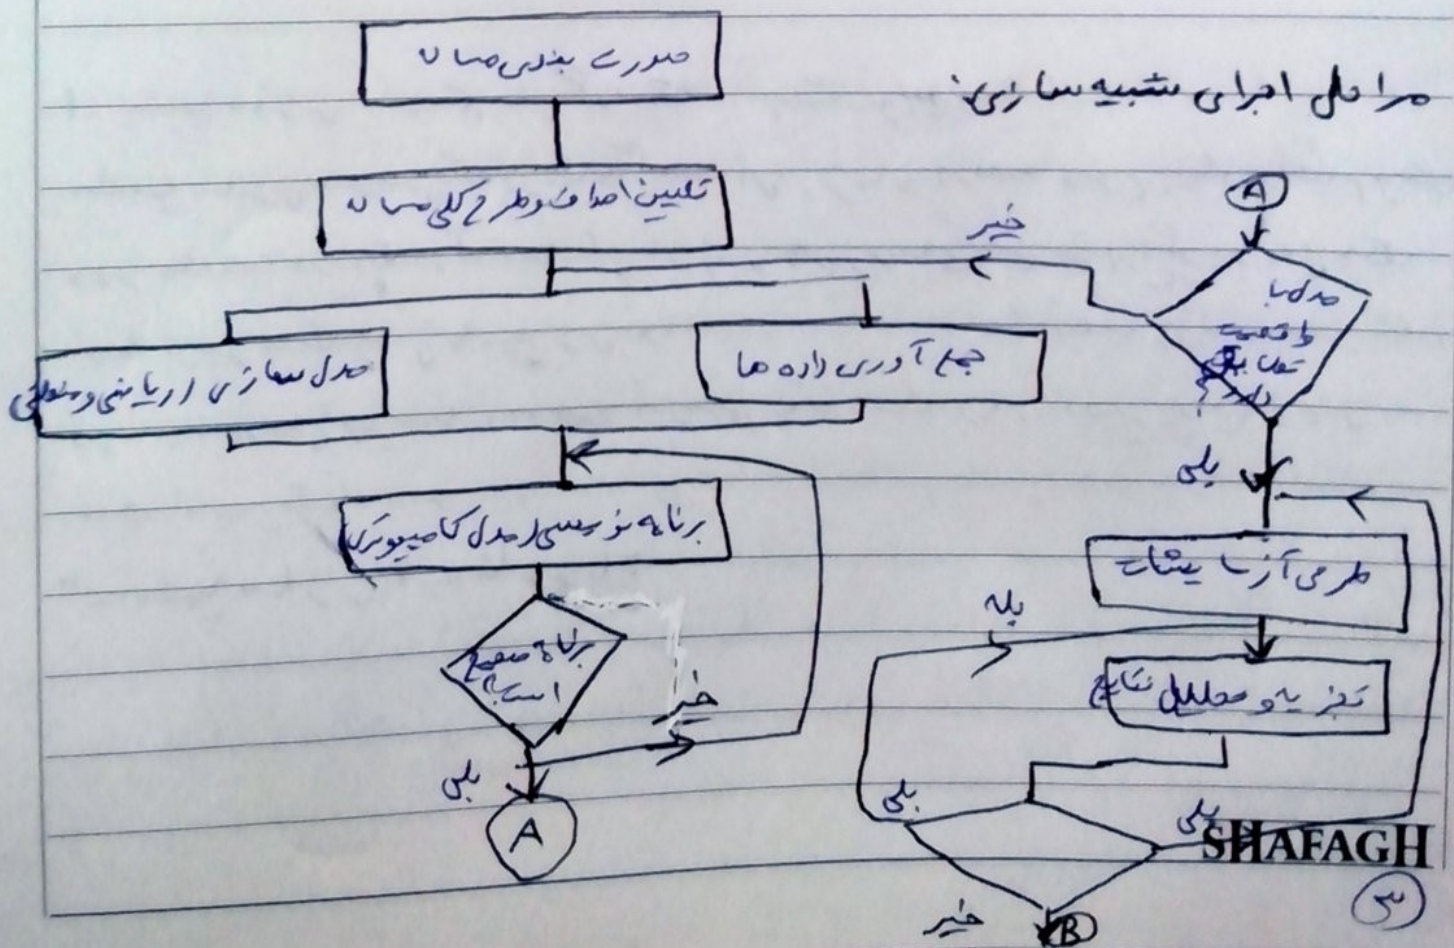 مراحل اجرای شبیه سازی:
صورت بندی مساله
تعیین اهداف و طرح کلی مساله
جمع آوری داده ها
مدل سازی (ریاضی و منطقی
برنامه نویسی (مدل کامپیوتری
برنامه صحیح
است؟
خیر
بلی
A
A
مدل با
واقعیت
تطابق
دارد؟
خیر
بلی
طراحی آزمایشات
بله
تجزیه و تحلیل نتایج
بلی
بلی
خیر
B
SHAFAGH
۳